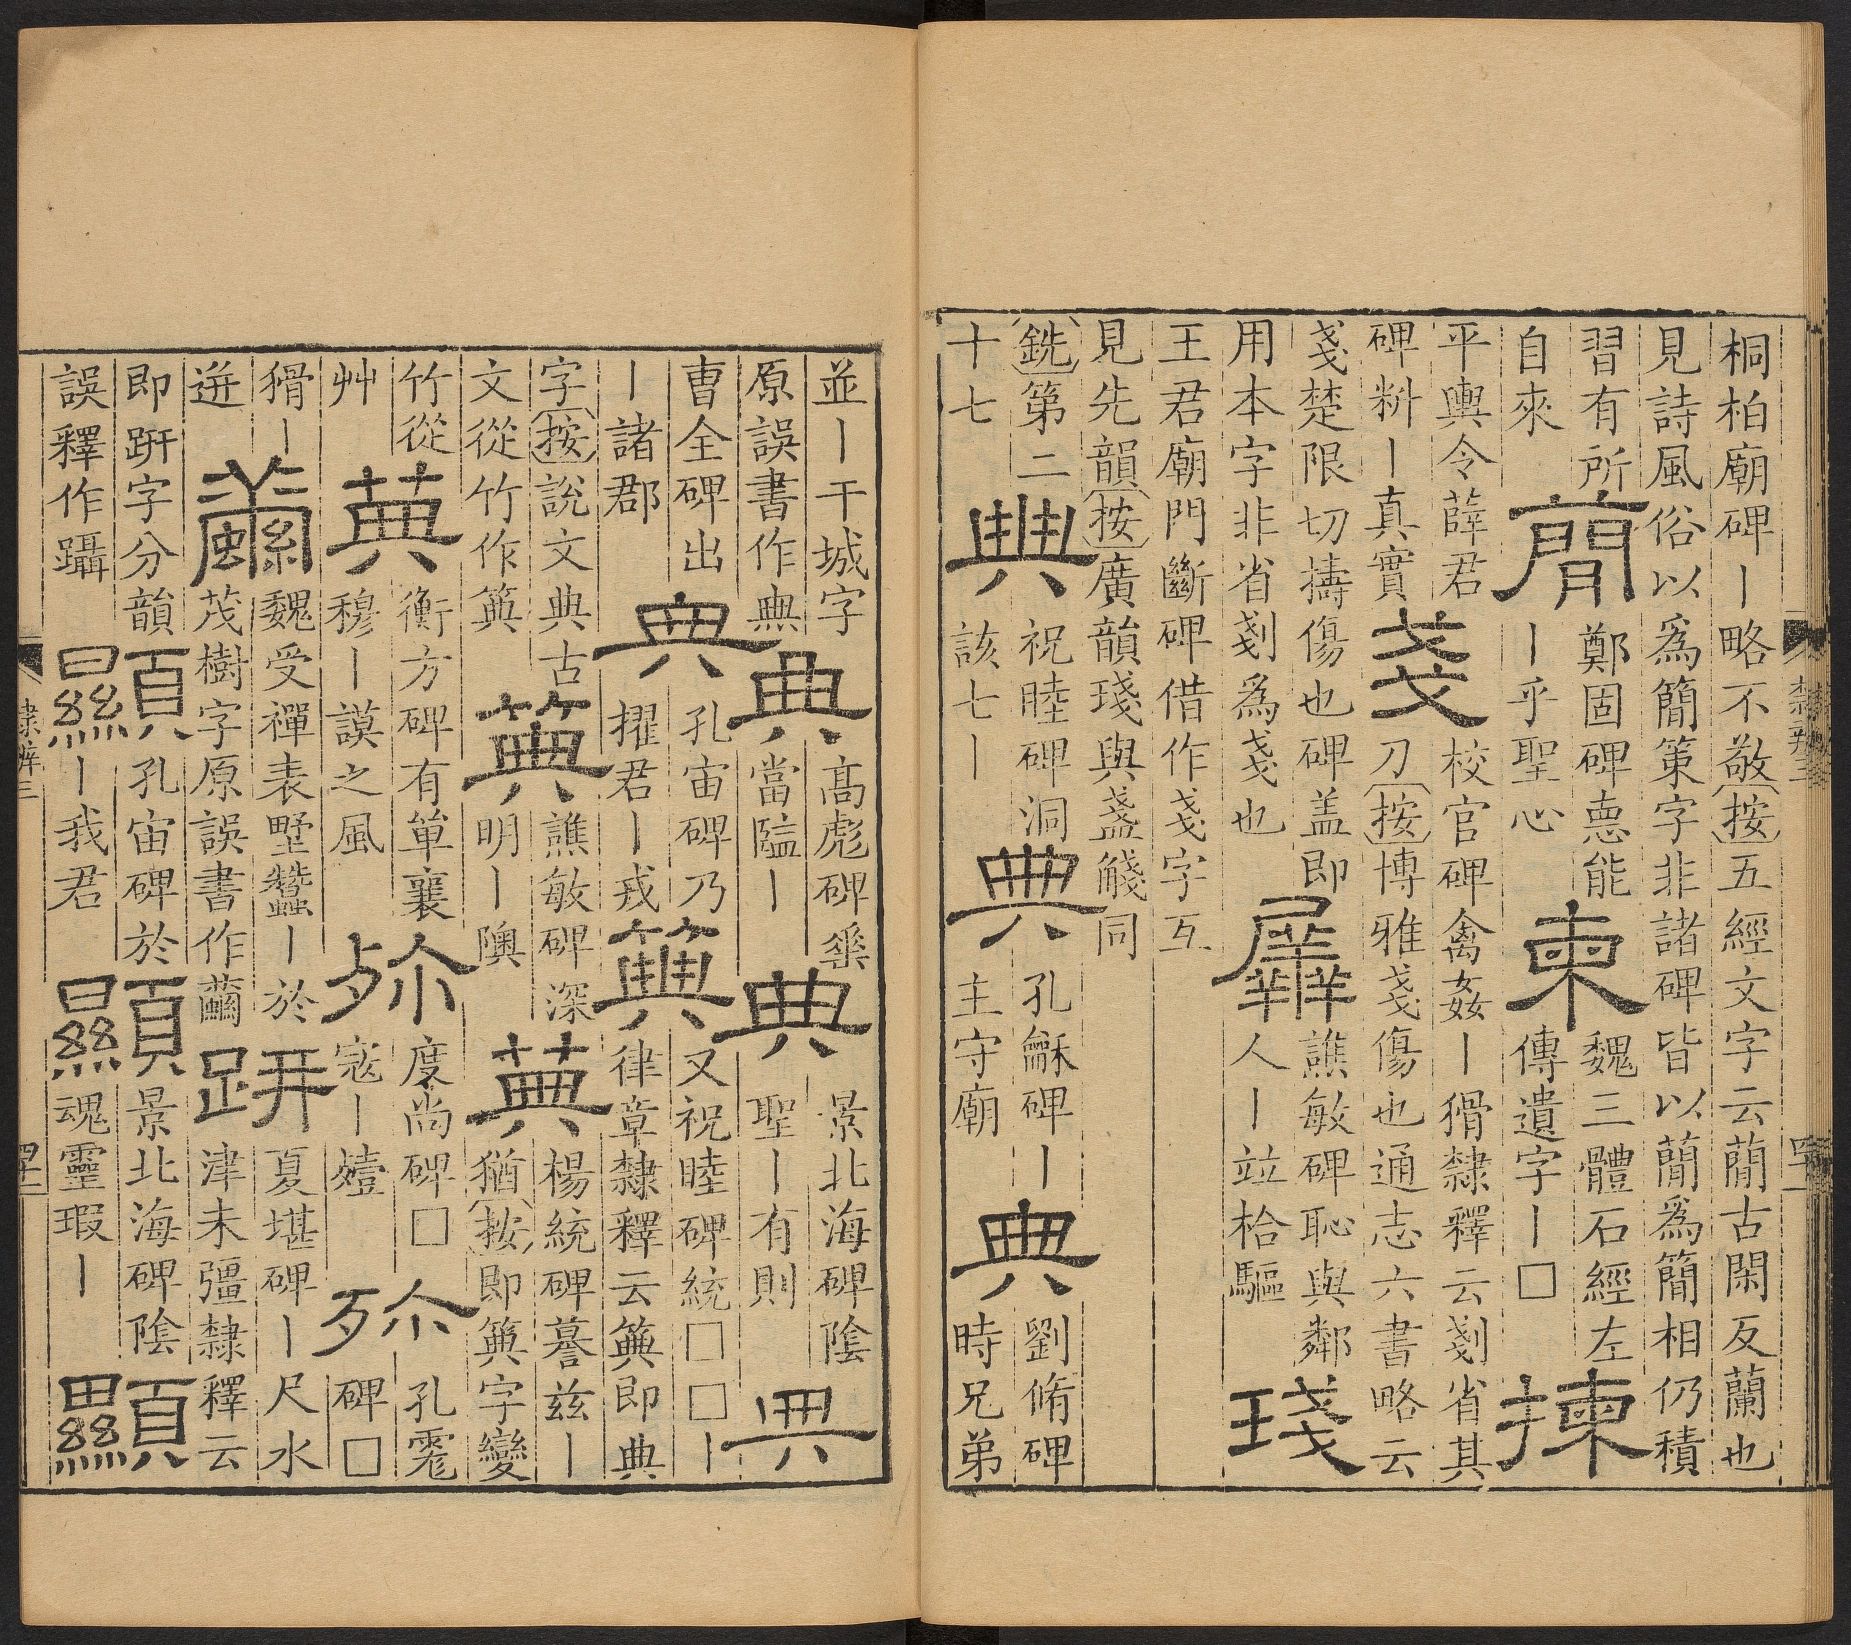 桐柏廟碑丨略不敬按五經文字云蕳古閑反蘭也
見詩風俗以爲簡策字非諸碑皆以蕳爲簡相仍積
習有所
自來
蕳
鄭固碑悳能
丨乎聖心
柬
魏三體石經左
傳遺字丨□
揀
平輿令薛君
碑料丨真實
戔
校官碑禽姦丨猾隸釋云剗省其
刀按博雅戔傷也通志六書略云
戔楚限切擣傷也碑盖即
用本字非省剗爲戔也
羼
譙敏碑恥與鄰
人丨竝拾驅
琖
王君廟門斷碑借作戔字互
見先韻按廣韻琖與盞醆同
銑第二
十七
典
祝睦碑洞
該七丨
典
孔龢碑丨
主守廟
典
劉脩碑
時兄弟
隸辨三
並丨干城字
原誤書作
典
高彪碑
當臨丨
典
景北海碑陰
聖丨有則
典
曹全碑出
丨諸郡
典
孔宙碑乃
擢君丨戎
䇦
又祝睦碑統□□丨
律章隸釋云䇦即典
字按說文典古
文從竹作䇦
䇦
譙敏碑深
明丨隩
楊統碑兹丨
猶按即䇦字變
竹從
艸
衡方碑有單襄
穆丨謨之風
殄
度尚碑□
寇丨
殄
孔
碑□
猾丨
迸
繭
魏受禪表墅蠶丨於
茂樹字原誤書作繭
趼
夏堪碑丨尺水
津未彊隸釋云
即趼字分韻
誤釋作躡
顯
孔宙碑於
丨我君
顯
景北海碑陰
魂靈瑕丨
顯
隸辨三